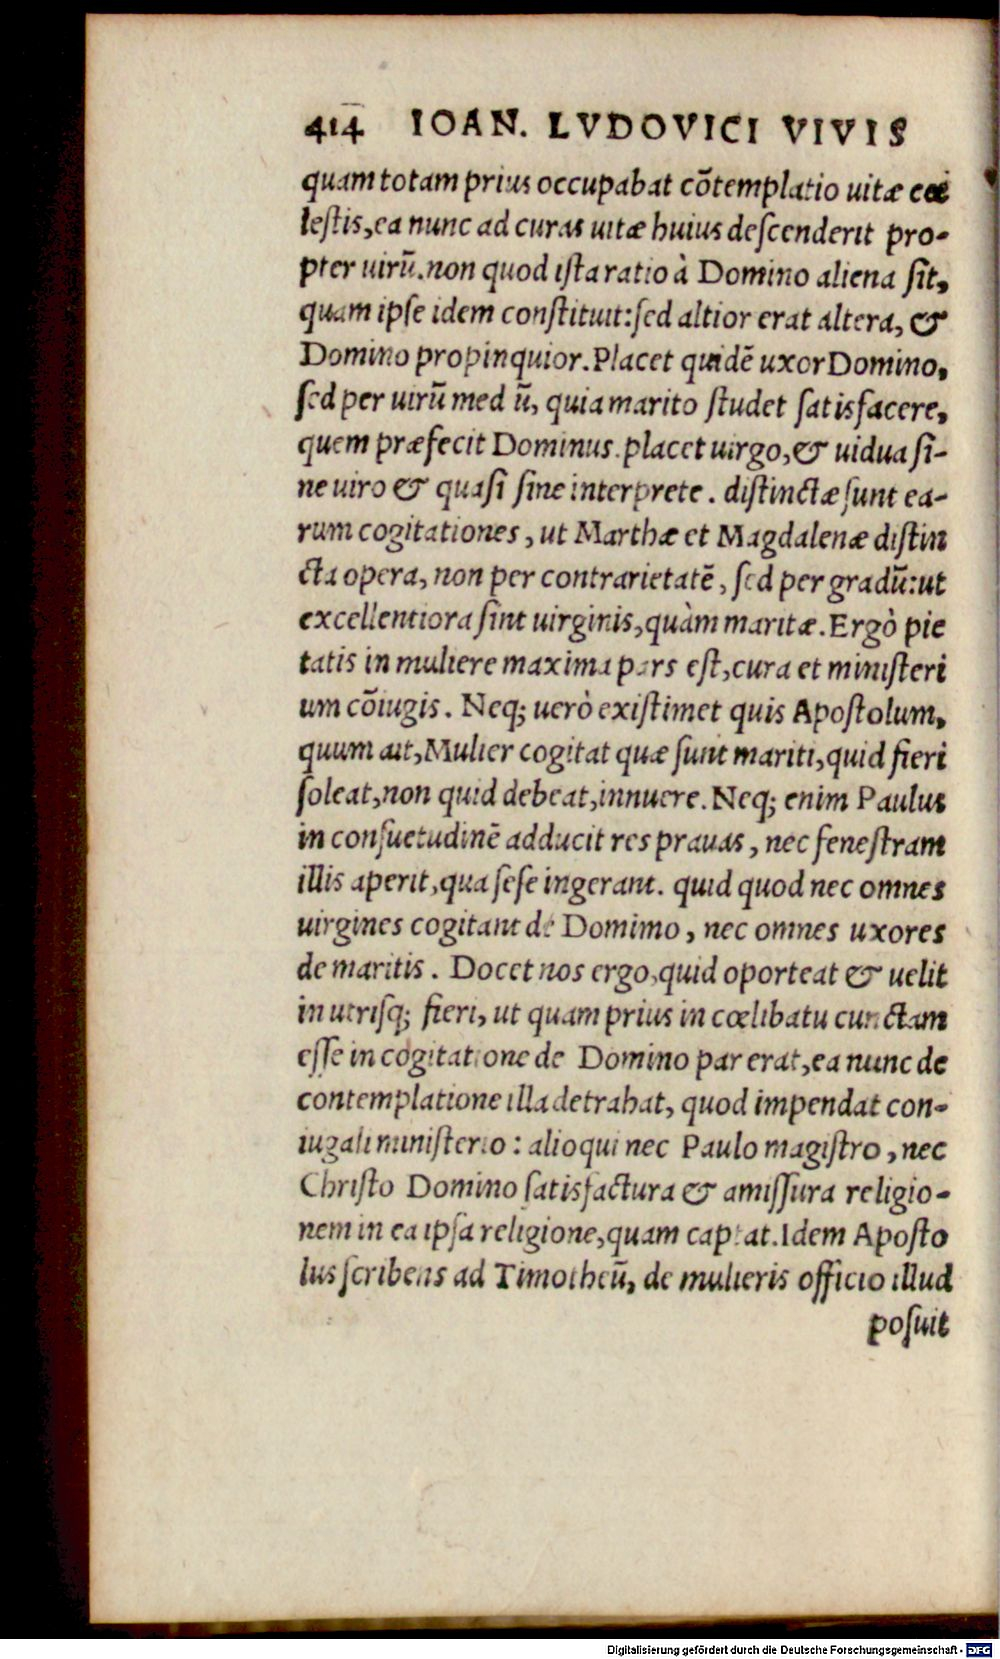 414 IOAN. LVDOVICI VIVIS
quam totam prius occupabat cõtemplatio uitæ cœ
lestis, ea nunc ad curas uitæ huius descenderit pro-
pter uirũ. non quod ista ratio à Domino aliena sit,
quam ipse idem constituit: sed altior erat altera, &
Domino propinquior. Placet quidẽ uxor Domino,
sed per uirũ med ũ, quia marito studet satisfacere,
quem præfecit Dominus. placet uirgo, & uidua si-
ne uiro & quasi sine interprete. distinctæ sunt ea-
rum cogitationes, ut Marthæ et Magdalenæ distin
cta opera, non per contrarietatẽ, sed per gradũ: ut
excellentiora sint uirginis, quàm maritæ. Ergò pie
tatis in muliere maxima pars est, cura et ministeri
um cõiugis. Neq; uerò existimet quis Apostolum,
quum ait, Mulier cogitat quæ sunt mariti, quid fieri
soleat, non quid debeat, innuere. Neq; enim Paulus
in consuetudinẽ adducit res prauas, nec fenestram
illis aperit, qua sese ingerant. quid quod nec omnes
uirgines cogitant de Domimo, nec omnes uxores
de maritis. Docet nos ergo, quid oporteat & uelit
in utrisq; fieri, ut quam prius in cœlibatu cunctam
esse in cogitatione de Domino par erat, ea nunc de
contemplatione illa detrahat, quod impendat con-
iugali ministerio: alioqui nec Paulo magistro, nec
Christo Domino satisfactura & amissura religio-
nem in ea ipsa religione, quam captat. Idem Aposto
lus scribens ad Timotheũ, de mulieris officio illud
posuit
Digitalisierung gefördert durch die Deutsche Forschungsgemeinschaft - DFG